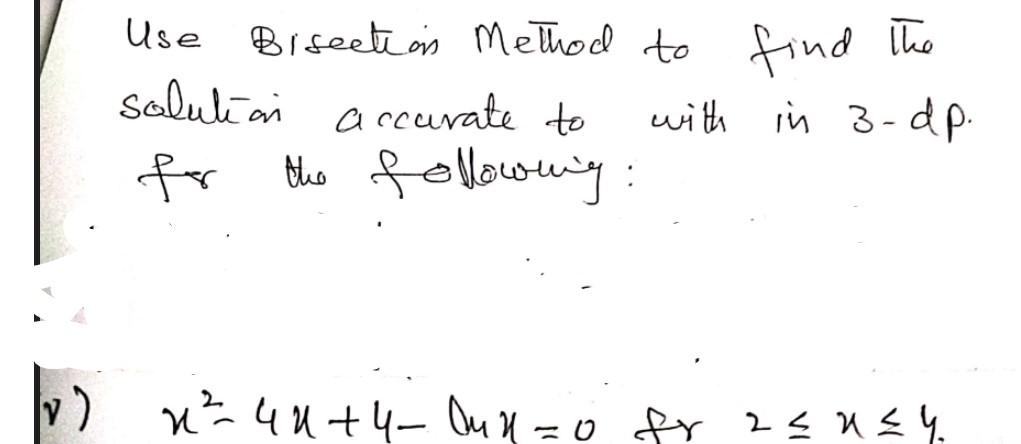 Use Bisection Method to find the
solution accurate to with in 3-dp.
for the following:
v) x² - 4x + 4 - ln x = 0 for 2 ≤ x ≤ 4.